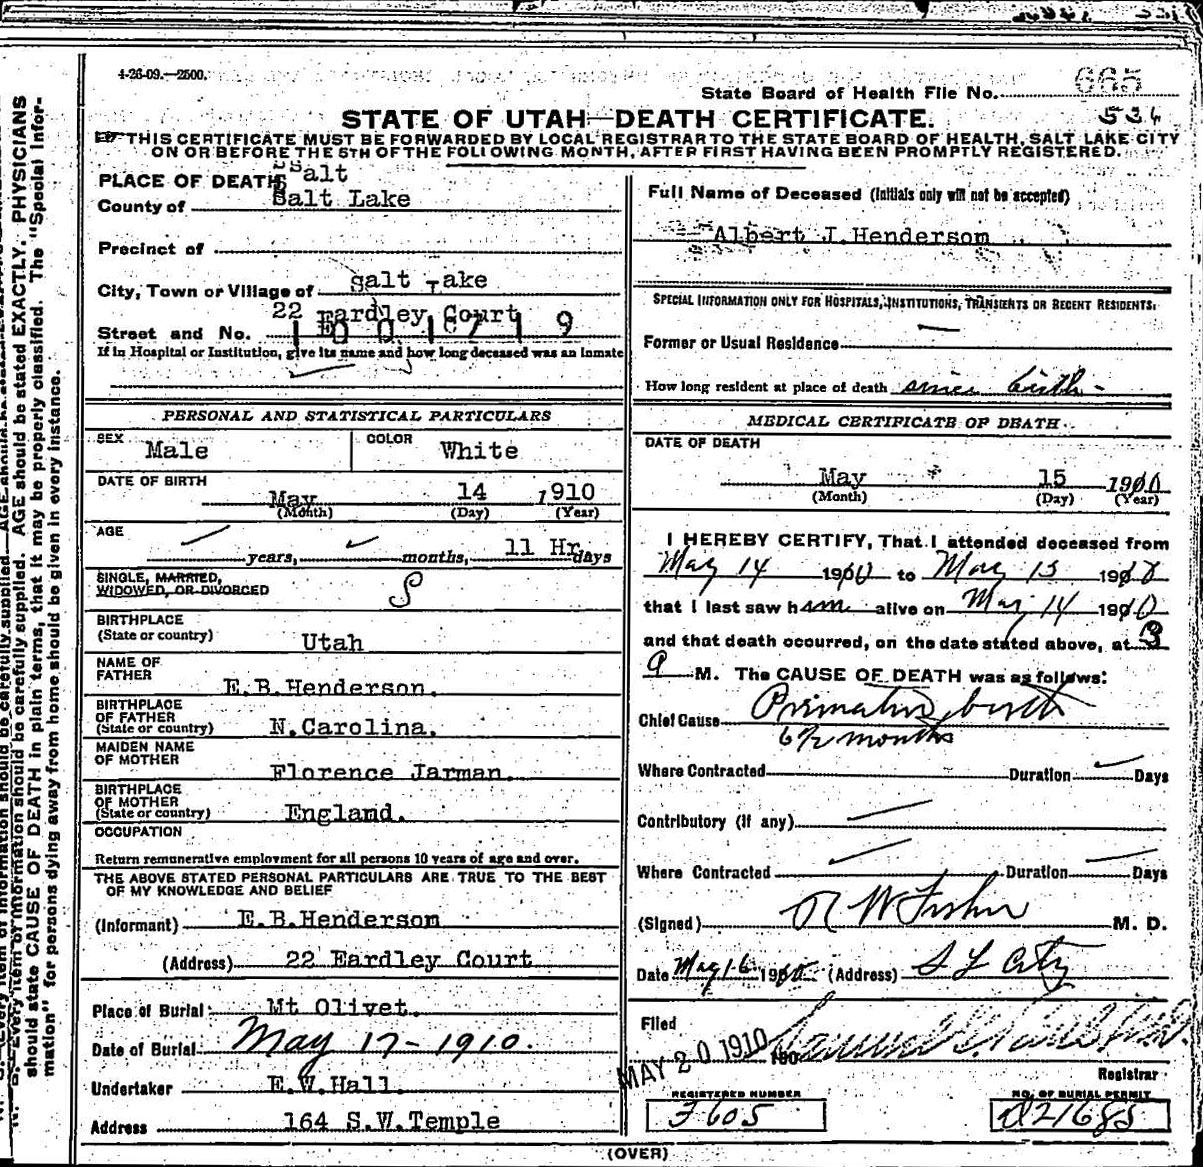 4-26-09.—2500.
State Board of Health File No. 665
536
STATE OF UTAH—DEATH CERTIFICATE.
THIS CERTIFICATE MUST BE FORWARDED BY LOCAL REGISTRAR TO THE STATE BOARD OF HEALTH, SALT LAKE CITY
ON OR BEFORE THE 5TH OF THE FOLLOWING MONTH, AFTER FIRST HAVING BEEN PROMPTLY REGISTERED.
PLACE OF DEATH Salt
County of Salt Lake
Precinct of
City, Town or Village of Salt Lake
Street and No. 22 Eardley Court
If in Hospital or Institution, give its name and how long deceased was an inmate
PERSONAL AND STATISTICAL PARTICULARS
SEX Male COLOR White
DATE OF BIRTH
May 14 1910
(Month) (Day) (Year)
AGE
years, months, 11 Hr. days
SINGLE, MARRIED,
WIDOWED, OR DIVORCED S
BIRTHPLACE
(State or country) Utah
NAME OF
FATHER E.B.Henderson.
BIRTHPLACE
OF FATHER
(State or country) N.Carolina.
MAIDEN NAME
OF MOTHER Florence Jarman.
BIRTHPLACE
OF MOTHER
(State or country) England.
OCCUPATION
Return remunerative employment for all persons 10 years of age and over.
THE ABOVE STATED PERSONAL PARTICULARS ARE TRUE TO THE BEST
OF MY KNOWLEDGE AND BELIEF
(Informant) E.B.Henderson
(Address) 22 Eardley Court
Place of Burial Mt Olivet.
Date of Burial May 17-1910.
Undertaker E.W.Hall.
Address 164 S.W.Temple
Full Name of Deceased (Initials only will not be accepted)
Albert J.Henderson
SPECIAL INFORMATION ONLY FOR HOSPITALS, INSTITUTIONS, TRANSIENTS OR RECENT RESIDENTS.
Former or Usual Residence
How long resident at place of death since birth-
MEDICAL CERTIFICATE OF DEATH
DATE OF DEATH
May 15 1910
(Month) (Day) (Year)
I HEREBY CERTIFY, That I attended deceased from
May 14 1910 to May 15 1910
that I last saw him alive on May 14 1910
and that death occurred, on the date stated above, at 3
a M. The CAUSE OF DEATH was as follows:
Chief Cause Primature birth
6½ months
Where Contracted Duration Days
Contributory (if any)
Where Contracted Duration Days
(Signed) R W Fisher M. D.
Date May 16 1910 (Address) S L City
Filed
MAY 20 1910 190
Registrar
REGISTERED NUMBER NO. OF BURIAL PERMIT
3605 A21685
(OVER)
AGE should be stated EXACTLY. PHYSICIANS
should state CAUSE OF DEATH in plain terms, that it may be properly classified. The "Special Infor-
mation" for persons dying away from home should be given in every instance.